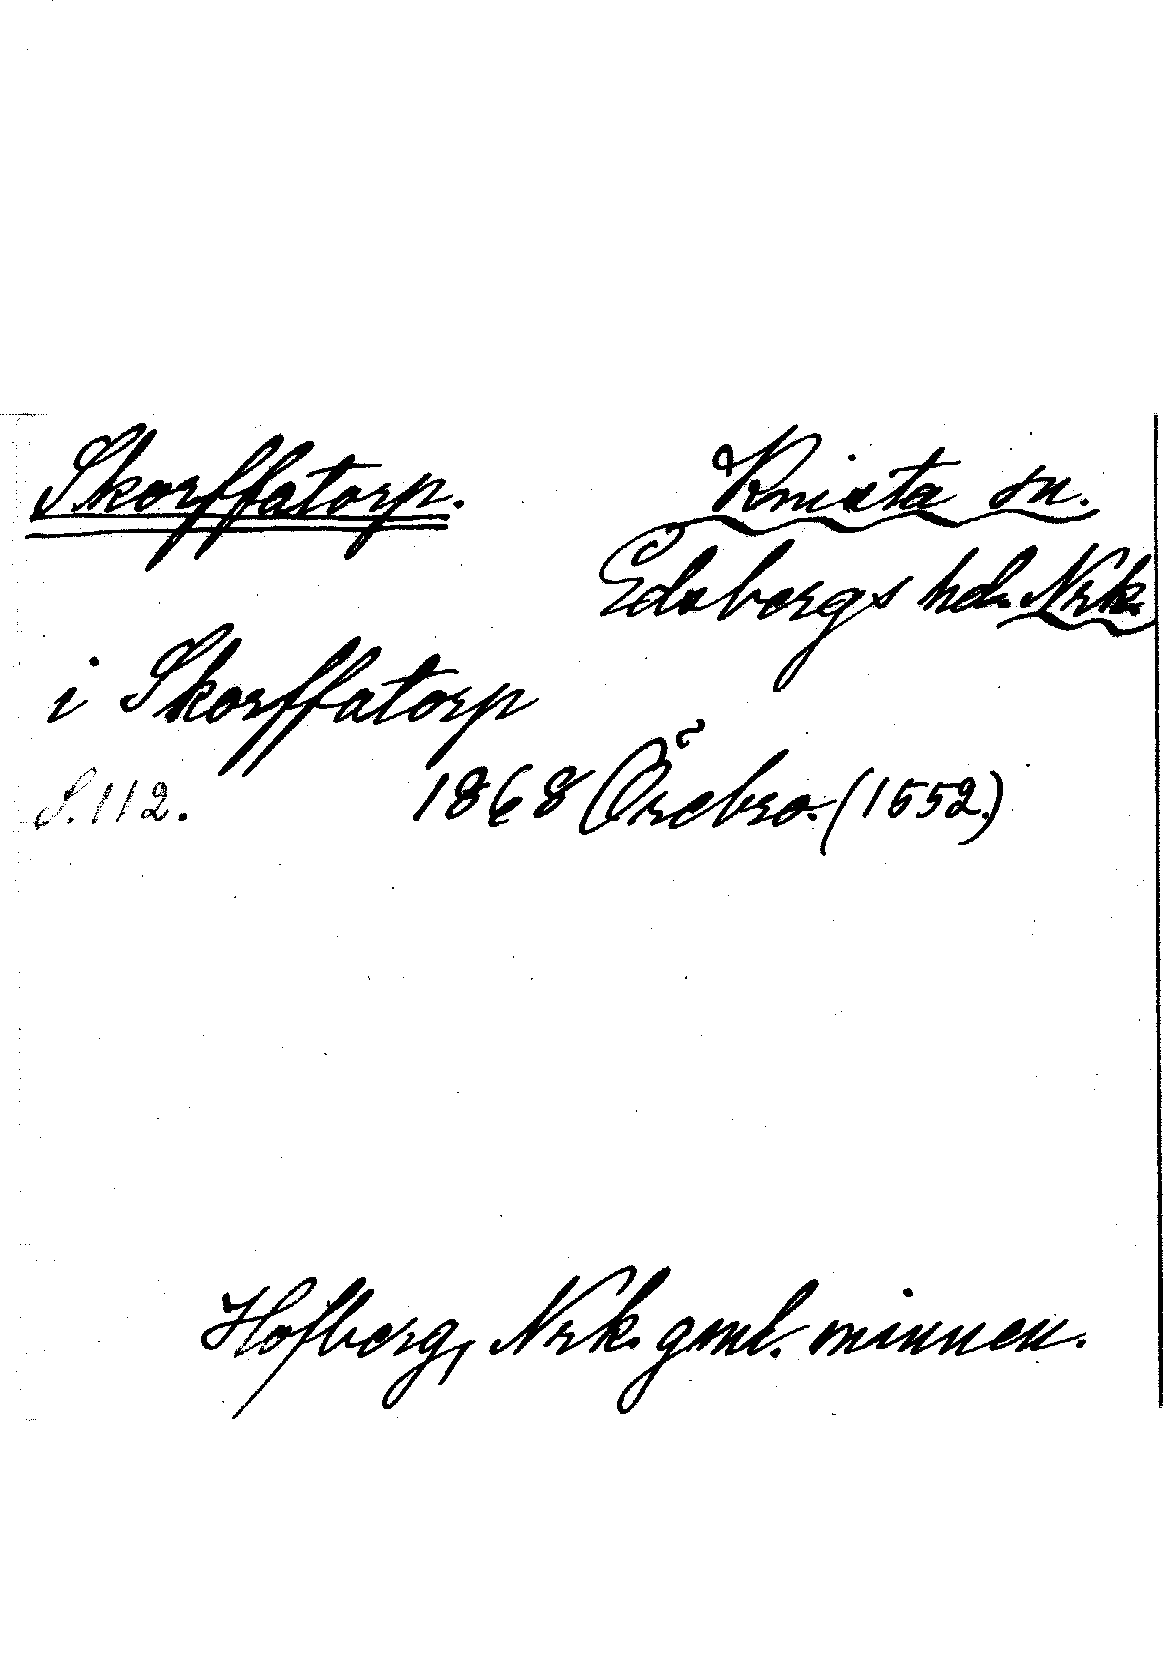 Skorffatorp.
Knista sn.
Edsbergs hd. Nrk.
i Skorffatorp
S. 112. 1868 Örebro. (1552.)
Hofberg, Nrk. gml. minnen.